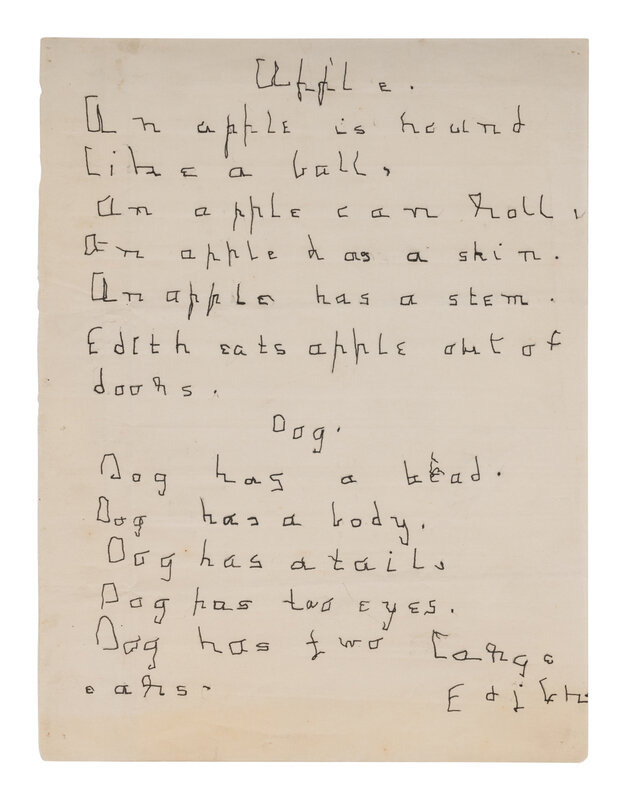 Apple.
An apple is round
Like a ball,
An apple can roll,
An apple has a skin.
An apple has a stem.
Edith eats apple out of
doors.
Dog.
Dog has a head.
Dog has a body.
Dog has a tail,
Dog has two eyes.
Dog has two large
ears.
Edith